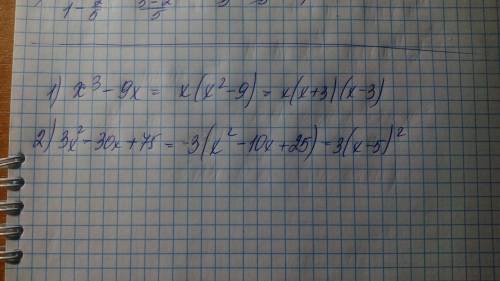 1 - x/5 5-x/5
1) x³ - 9x = x(x² - 9) = x(x+3)(x-3)
2) 3x² - 30x + 75 = 3(x² - 10x + 25) = 3(x-5)²